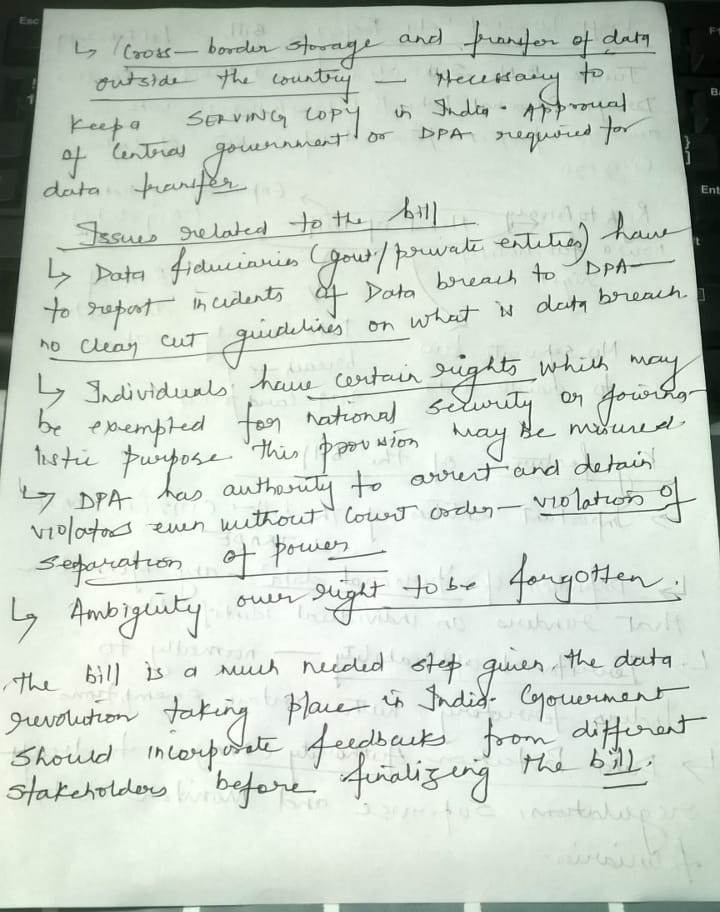 ↳ Cross-border storage and transfer of data
outside the country - Necessary to
Keep a SERVING COPY in India. Approval
of Central government or DPA required for
data transfer
Issues related to the bill
↳ Data fiduciaries (govt/private entities) have
to report incidents of Data breach to DPA-
no clear cut guidelines on what is data breach.
↳ Individuals have certain rights which may
be exempted for national security or journa-
listic purpose this provision may be misused.
↳ DPA has authority to arrest and detain
violators even without Court order - violation of
separation of power
↳ Ambiguity over right to be forgotten.
The bill is a much needed step given the data
revolution taking place in India. Government
should incorporate feedbacks from different
stakeholders before finalizing the bill.
Esc
F1
Ba
}
]
Ent